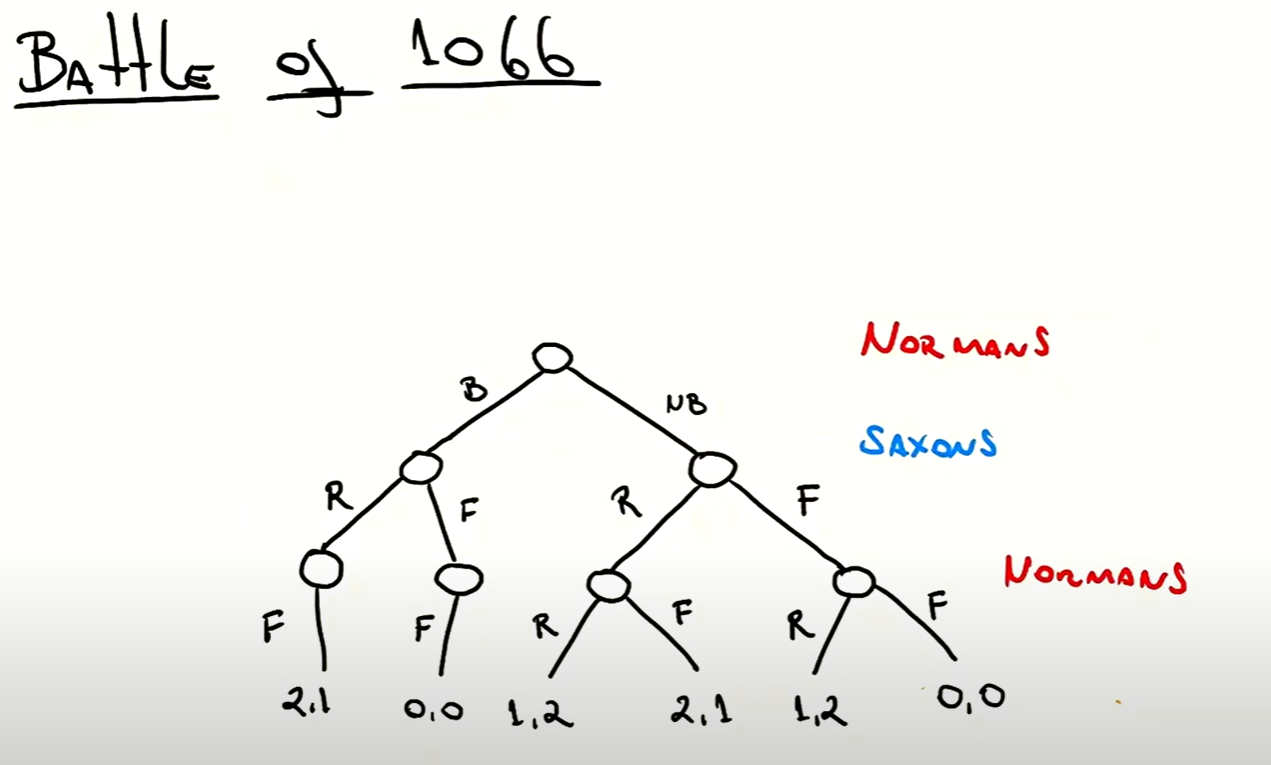 Battle of 1066
NORMANS
B NB
SAXONS
R F R F
NORMANS
F F R F R F
2,1 0,0 1,2 2,1 1,2 0,0